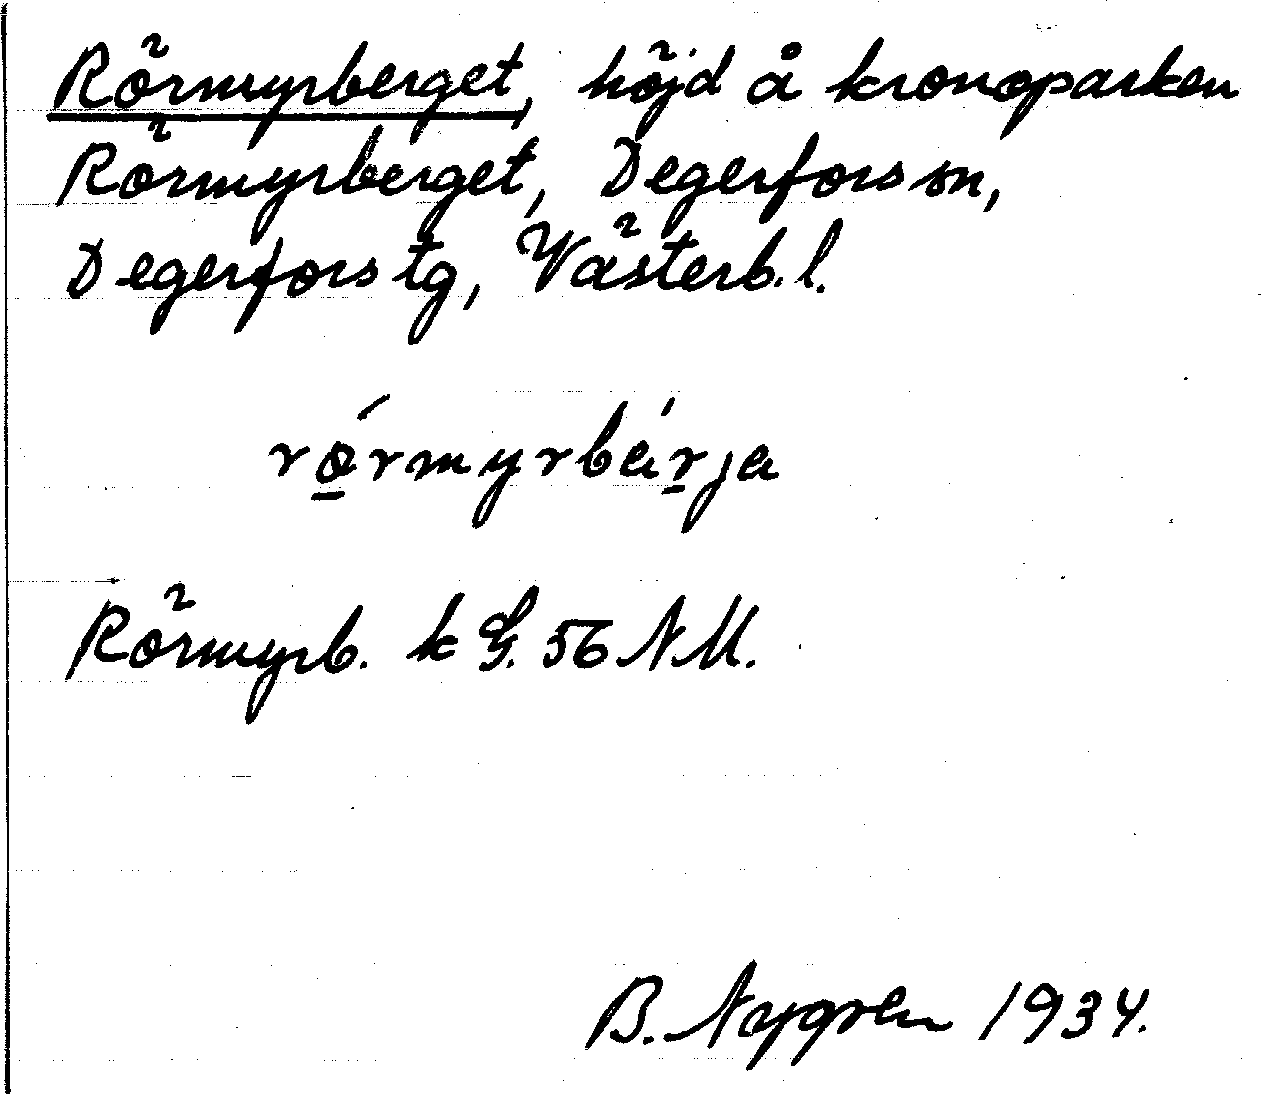 Rörmyrberget, höjd å kronoparken
Rörmyrberget, Degerfors sn,
Degerfors tg, Västerb. l.
rọ́rmyrbár̠ja
Rörmyrb. k G. 56 NM.
B. Nygren 1934.